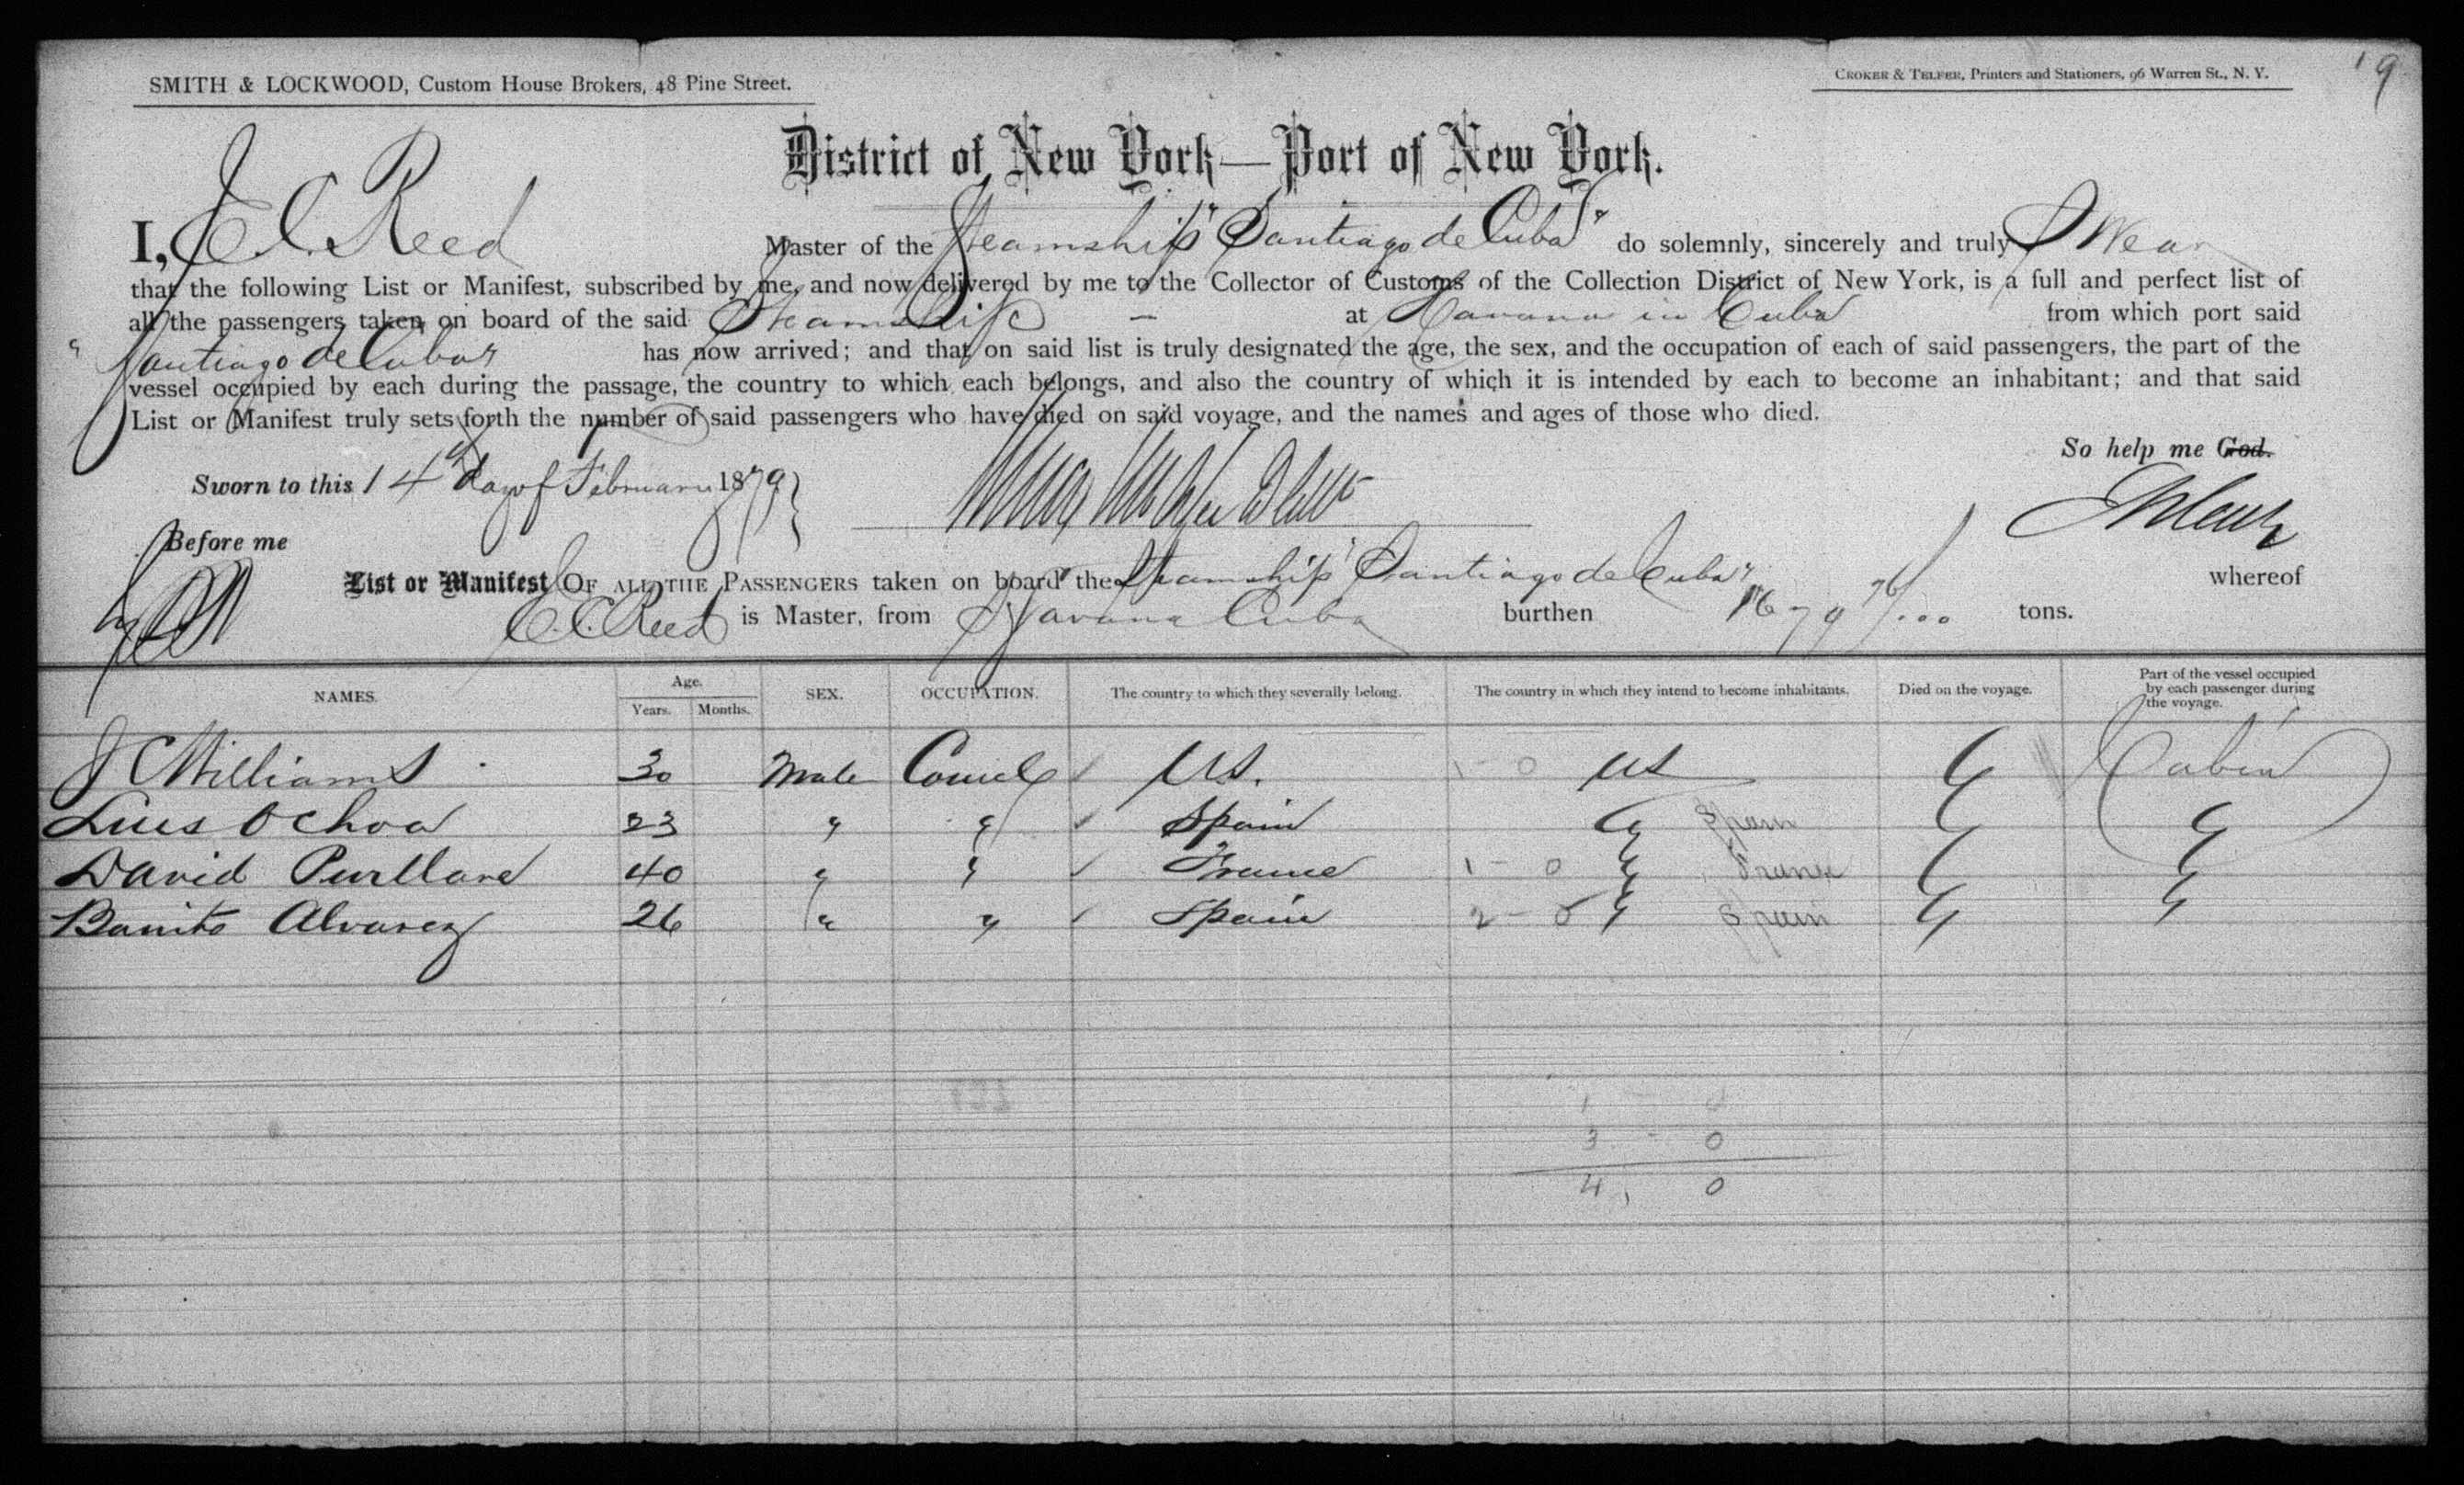 '9
SMITH & LOCKWOOD, Custom House Brokers, 48 Pine Street.
CROKER & TELFER, Printers and Stationers, 96 Warren St., N. Y.
District of New York—Port of New York.
I, E. C. Reed Master of the Steamship "Santiago de Cuba" do solemnly, sincerely and truly Swear
that the following List or Manifest, subscribed by me, and now delivered by me to the Collector of Customs of the Collection District of New York, is a full and perfect list of
all the passengers taken on board of the said Steamship — at Havana in Cuba from which port said
"Santiago de Cuba" has now arrived; and that on said list is truly designated the age, the sex, and the occupation of each of said passengers, the part of the
vessel occupied by each during the passage, the country to which each belongs, and also the country of which it is intended by each to become an inhabitant; and that said
List or Manifest truly sets forth the number of said passengers who have died on said voyage, and the names and ages of those who died.
So help me God.
Sworn to this 14th day of February 1879
Before me
List or Manifest OF ALL THE PASSENGERS taken on board the Steamship "Santiago de Cuba" whereof
E. C. Reed is Master, from Havana Cuba burthen 1679 76/... tons.
NAMES. Age. Years. Months. SEX. OCCUPATION. The country to which they severally belong. The country in which they intend to become inhabitants. Died on the voyage. Part of the vessel occupied by each passenger during the voyage.
J C Williams 30 Male U.S. 1 - 0 US " Cabin
Luis Ochoa 23 " " Spain " Spain " "
David 40 " " France 1 - 0 " France " "
Benito Alvarez 26 " " Spain 2 - 0 " Spain " "
1 - 0
3 - 0
4, 0